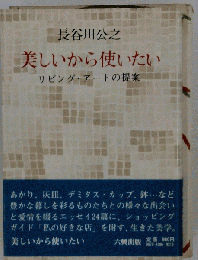 長谷川公之
美しいから使いたい
リビング・アートの提案
あかり、灰皿、デミタス・カップ、鉢…など
豊かな暮しを彩るものたちとの様々な出会い
と愛情を綴るエッセイ24篇に、ショッピング
ガイド「私の好きな店」を附す、生きた美学。
美しいから使いたい 六興出版 定価